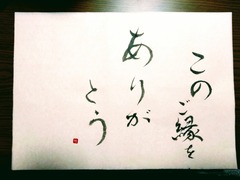 このご縁を
ありが
とう